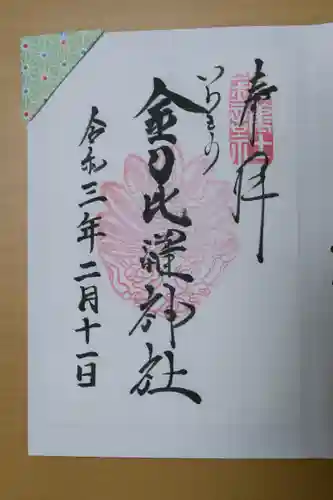 奉拝
いらすの
金刀比羅神社
令和三年二月十一日